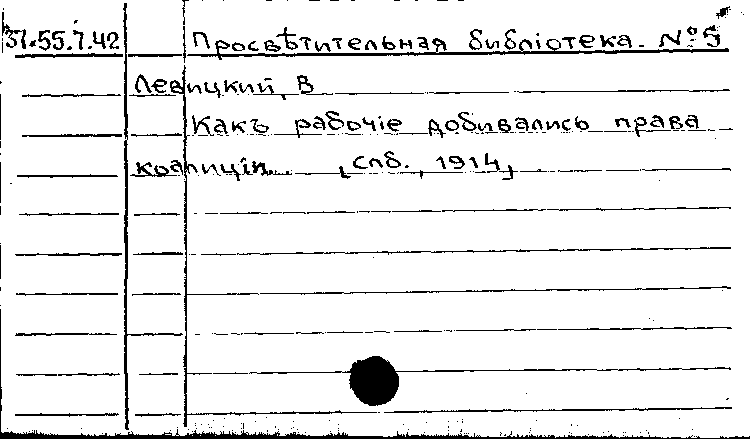 37.55.7.42 Просвѣтительная библіотека. № 5
Левицкий, В
Какъ рабочіе добивались права
коалиціи. [Спб., 1914]